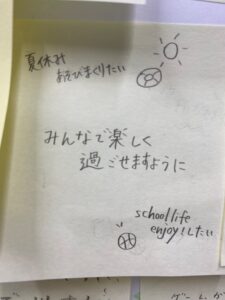 夏休み
あそびまくりたい
みんなで楽しく
過ごせますように
school life
enjoy!したい